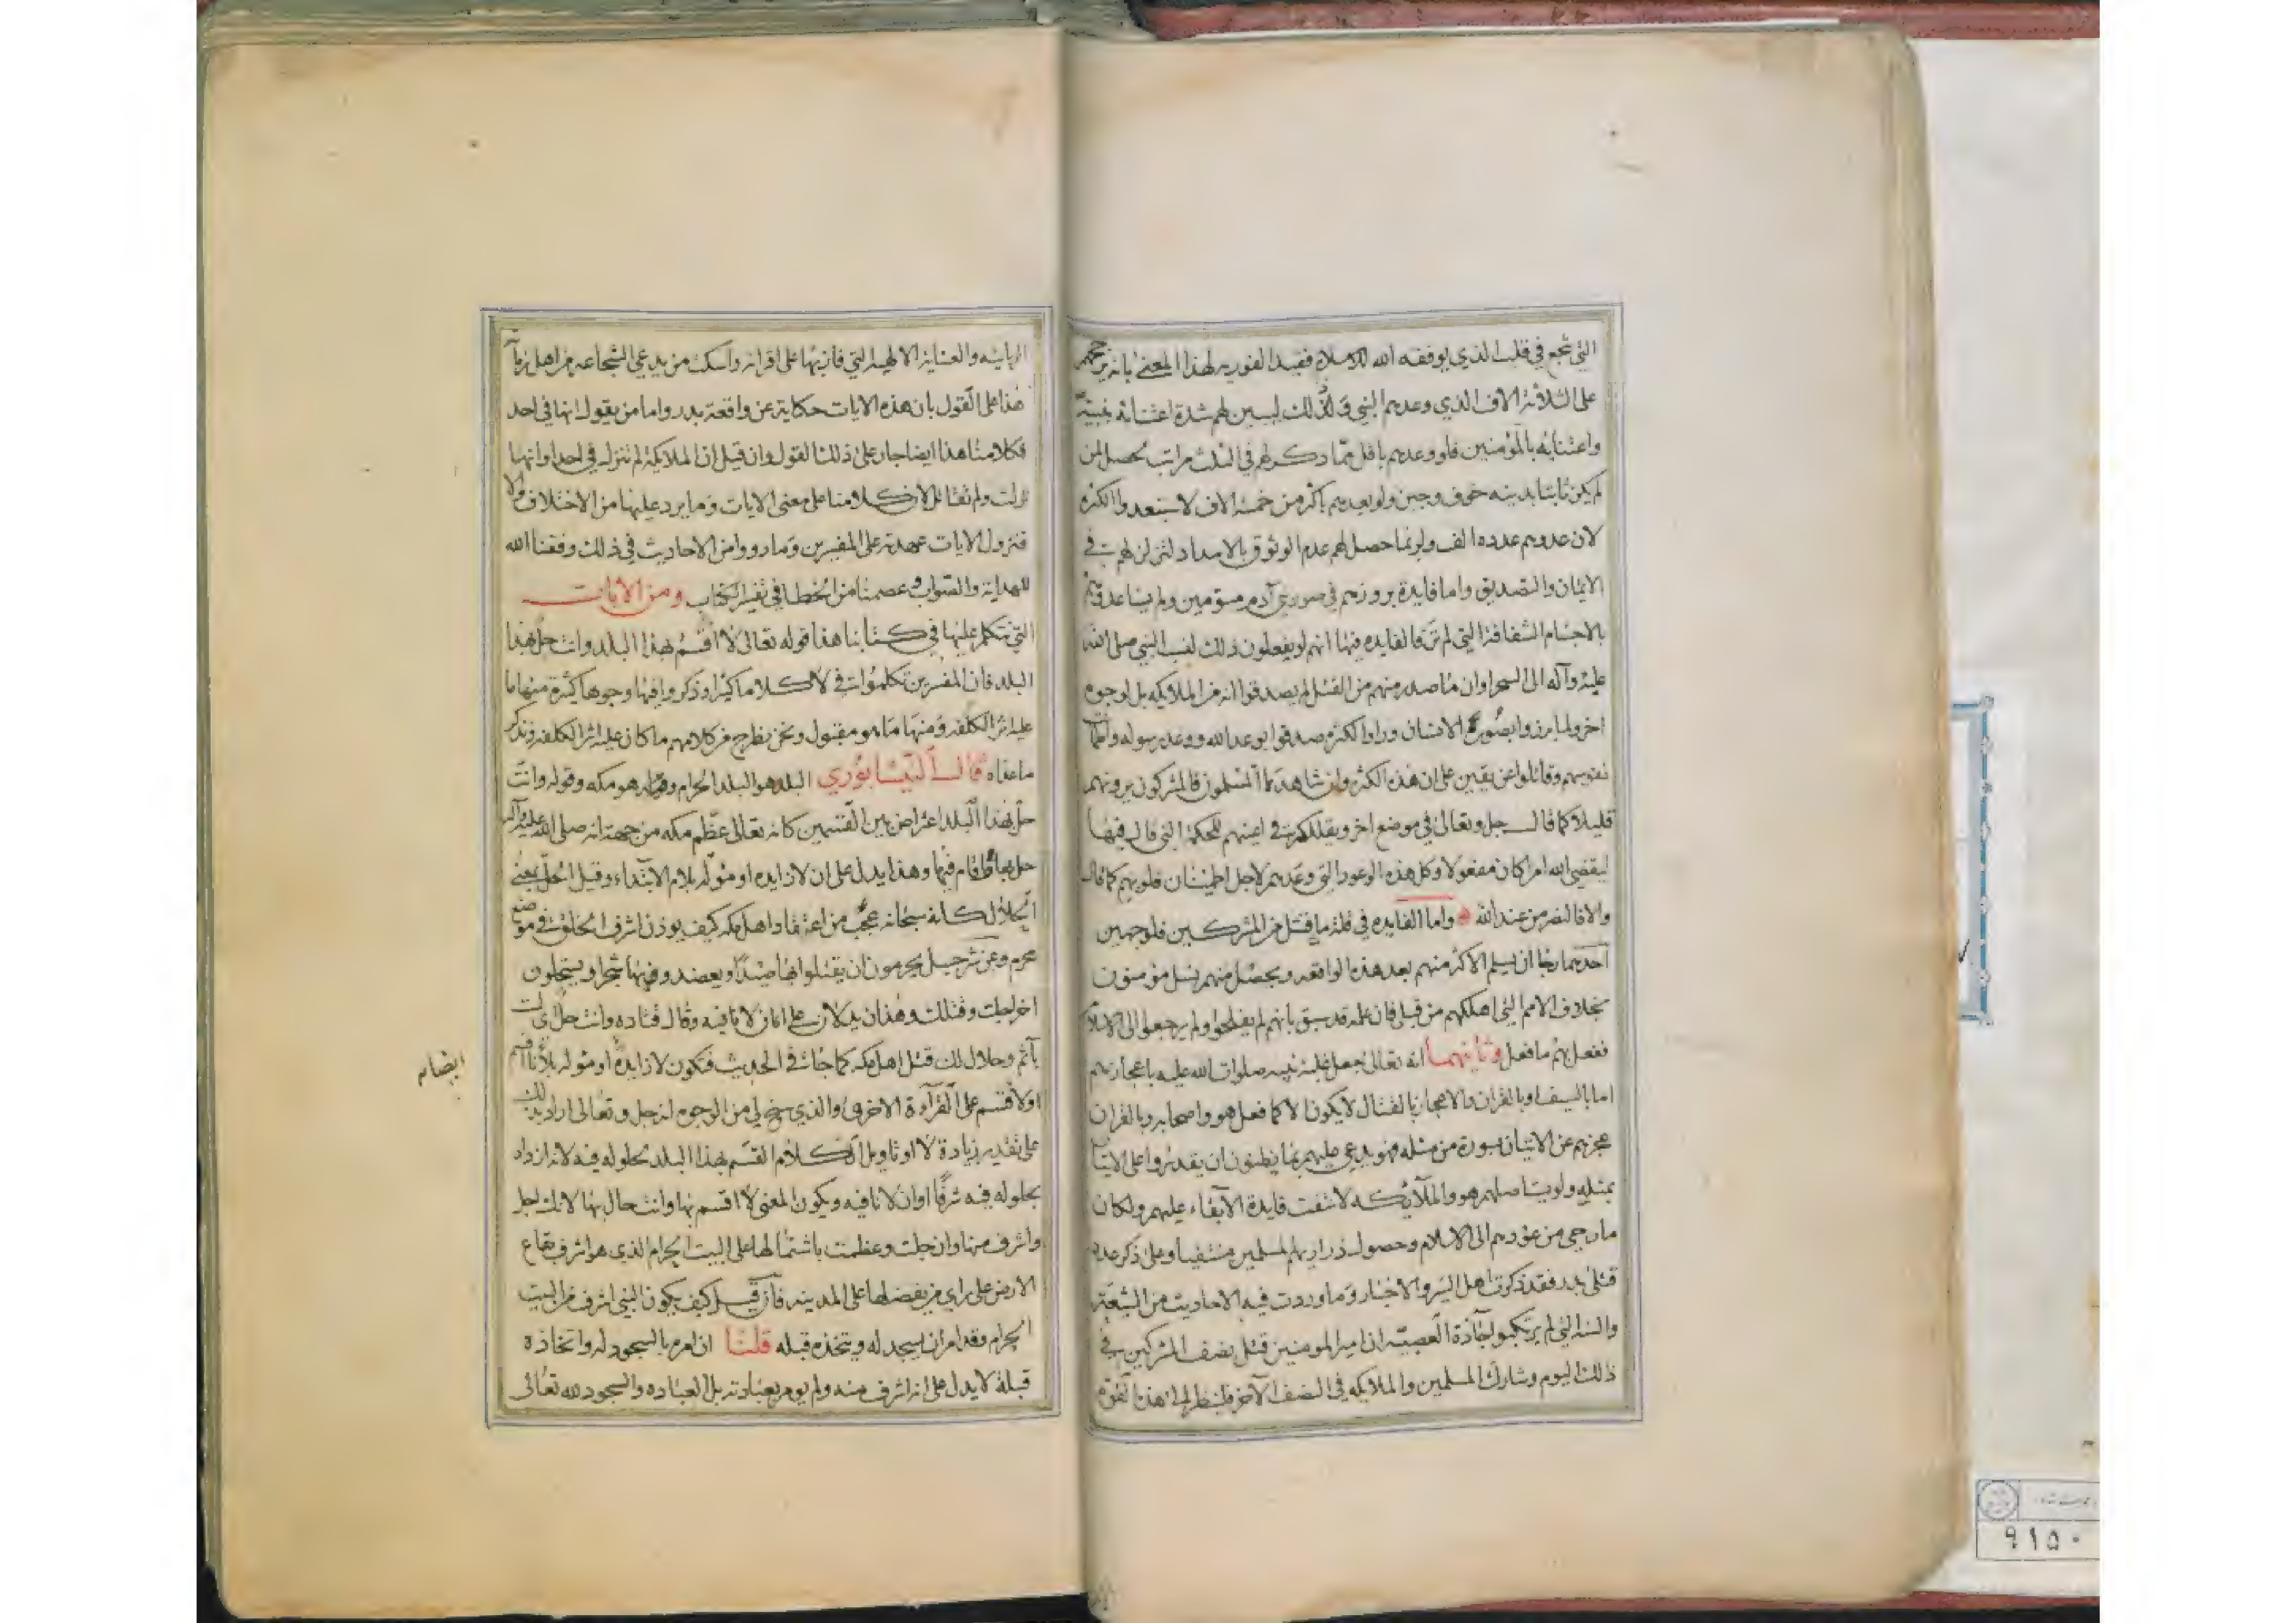 التي تجمع في قلب الذي يوفقه الله للاسلام فقيد الفوريه لهذا المعنى بانه يرجحهم
على الثلاثة الاف الذي وعدهم النبي وكذلك ليبين لهم شدة اعتنائه بنبيه
واعتنائه بالمؤمنين فلو وعدهم باقل مما ذكر لهم في الثلث مراتب لحصل لمن
لم يكن ثابتا بدينه خوف وجبن ولو يعدهم باكثر من خمسة الاف لاستبعدوا الكثرة
لان عدوهم عدده الف ولربما حصل لهم عدم الوثوق بالامداد لتزلزلهم في
الايمان والتصديق واما فايدة بروزهم في صورة بني آدم مسومين ولم يساعدوهم
بالاجسام الشفافة التي لم تر فالفايده فيها انهم لو يفعلون ذلك لنسب النبي صلى الله
عليه وآله الى السحر وان ما صدر منهم من القتل لم يصدقوا انه من الملايكه بل لوجوه
اخر ولما برزوا بصورة الانسان وراوا الكثره صدقوا بوعد الله ووعد رسوله واطمأنت
نفوسهم وقاتلوا عن يقين على ان هذه الكثرة وان شاهدها المسلمون فالمشركون يرونهم
قليلا كما قال جل وتعالى في موضع اخر ويقللكم في اعينهم للحكمة التي قال فيها
ليقضي الله امرا كان مفعولا وكل هذه الوعود التي وعدهم لاجل اطمينان قلوبهم كما قال
والا فالنصر من عند الله واما الفايده في قلة ما قتل من المشركين فلوجهين
احدهما رجا ان يسلم الاكثر منهم بعد هذه الواقعه ويحصل منهم نسل مؤمنون
بخلاف الامم التي اهلكهم من قبل فان علمه قد سبق بانهم لم يفلحوا ولم يرجعوا الى الاسلام
ففعل بهم ما فعل وثانيهما انه تعالى جعل غلبة نبيه صلوات الله عليه باعجازهم
اما بالسيف او بالقران والاعجاز بالقتال لا يكون الا كما فعل هو واصحابه وبالقران
عجزهم عن الاتيان بسورة من مثله فهو يدعي عليهم بما يظنون ان يقدروا على الاتيان
بمثله ولو يستاصلهم هو والملائكه لانتفت فايدة الابقاء عليهم ولكان
ما رجي من عودهم الى الاسلام وحصول ذراريهم لمسلمين منتفيا وعلى ذكر عدد
قتلى بدر فقد ذكرت اهل السير والاخبار وما وردت فيه الاحاديث من الشيعة
والسنه التي لم يرتكبوا لجادة العصبيه ان امير المومنين قتل نصف المشركين في
ذلك اليوم وشارك المسلمين والملايكه في النصف الآخر فلينظر الى هذه القوة
الربانيه والعنايه الالهيه التي فاز بها على اقرانه واسكت من يدعي الشجاعه من اهل زمانه
هذا على القول بان هذه الايات حكاية عن واقعة بدر واما من يقول انها في احد
فكلامنا هذا ايضا جار على ذلك القول وان قيل ان الملايكة لم تنزل في احد او انها
نزلت ولم تقاتل لان كلامنا على معنى الايات وما يرد عليها من الاختلاف والا
فنزول الايات عهدته على المفسرين وما رووا من الاحاديث في ذلك وفقنا الله
للهداية والصواب وعصمنا من الخطا في تفسير الكتاب ومن الايات
التي نتكلم عليها في كتابنا هذا قوله تعالى لا اقسم بهذا البلد وانت حل بهذا
البلد فان المفسرين تكلموا في لا كلاما كثيرا وذكروا فيها وجوها كثيرة منها ما
عليه اثر الكلفه ومنها ما هو مقبول ونحن نطرح من كلامهم ما كان عليه اثر الكلفه ونذكر
ما عداه قال النيسابوري البلد هو البلد الحرام وهو مكه وقوله وانت
حل بهذا البلد اعتراض بين القسمين كانه تعالى عظم مكه من جهة انه صلى الله عليه وآله
حل بها واقام فيها وهذا يدل على ان لا زايده او مؤله بلام الابتداء وقيل الحل بمعنى
الحلال كانه سبحانه عجب من اعتقاد اهل مكه كيف يوذن اشرف الخلق في موضع
محرم وعن شرحبيل يحرمون ان يقتلوا بها صيدا ويعضدوا فيها شجرا ويستحلون
اخراجك وقتلك وهذان يدلان على ان لا نافيه وقال قتاده وانت حل اي لست
بآثم وحلال لك قتل اهل مكه كما جاء في الحديث فتكون لا زايدة او مؤله بلأنا اقسم
ايضا
او لأقسم على القرآءة الاخرى والذي سنح لي من الوجوه انه جل وتعالى اراد بذلك
على تقدير زيادة لا او تاويل الكلام القسم بهذا البلد لحلوله فيه لانه ازداد
بحلوله فيه شرفا او ان لا نافيه ويكون المعنى لا اقسم بها وانت حال بها لانك اجل
واشرف منها وان جلت وعظمت باشتمالها على البيت الحرام الذي هو اشرف بقاع
الارض على راي من يفضلها على المدينه فان قيل كيف يكون النبي اشرف من البيت
الحرام وقد امر ان يسجد له ويتخذه قبله قلنا ان امره بالسجود له واتخاذه
قبلة لا يدل على انه اشرف منه ولم يومر بعبادته بل العباده والسجود لله تعالى
٩١٥٠